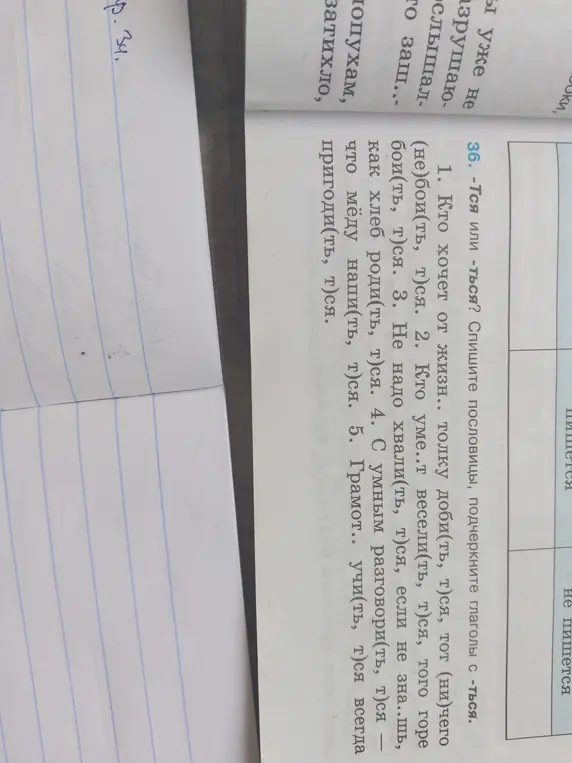 ы уже не
азрушаю-
ослышал-
то заш..-
лопухам,
затихло,
пишется
не пишется
36. -Тся или -ться? Спишите пословицы, подчеркните глаголы с -ться.
1. Кто хочет от жизн.. толку доби(ть, т)ся, тот (ни)чего
(не)бои(ть, т)ся. 2. Кто уме..т весели(ть, т)ся, того горе
бои(ть, т)ся. 3. Не надо хвали(ть, т)ся, если не зна..шь,
как хлеб роди(ть, т)ся. 4. С умным разговори(ть, т)ся —
что мёду напи(ть, т)ся. 5. Грамот.. учи(ть, т)ся всегда
пригоди(ть, т)ся.